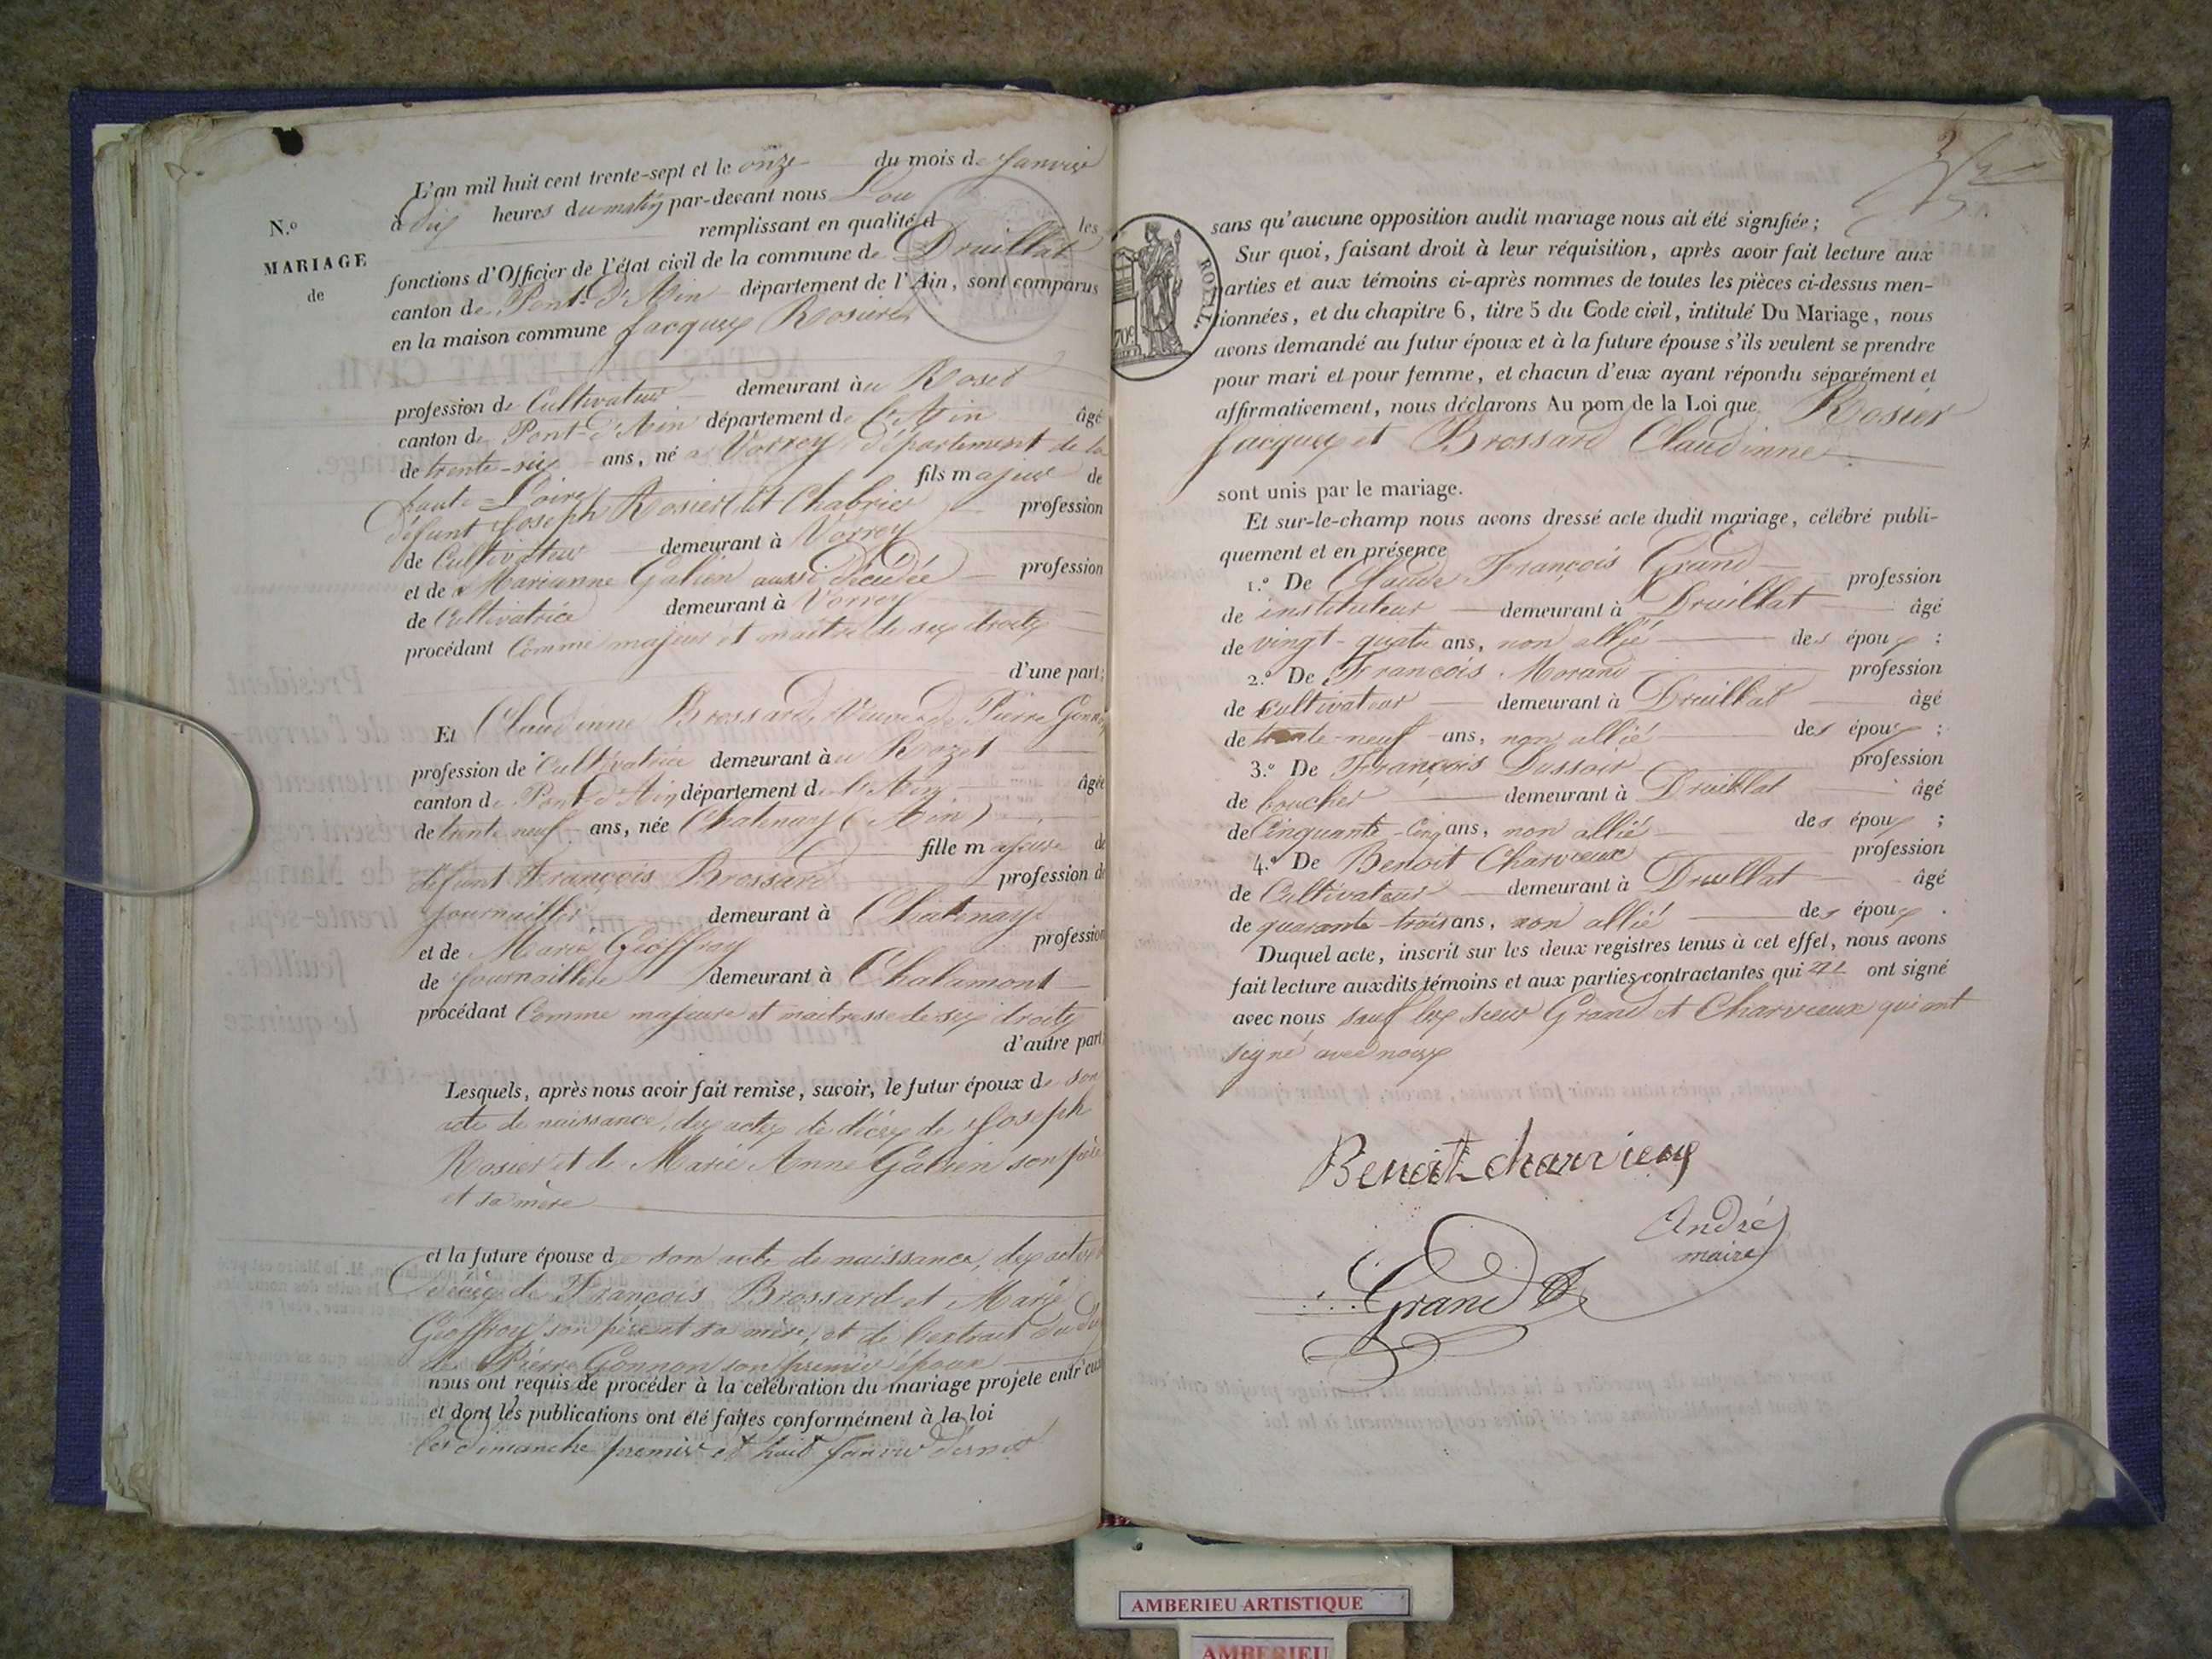 L'an mil huit cent trente-sept et le onze du mois de Janvier
à dix heures du matin par-devant nous
remplissant en qualité d les
N.º
MARIAGE
de
fonctions d'Officier de l'état civil de la commune de Druillat
canton de Pont-d'Ain département de l'Ain, sont comparus
en la maison commune Jacques Rosier
profession de Cultivateur demeurant au Roset
canton de Pont-d'Ain département de l'Ain âgé
de trente-six ans, né à Vorrey département de la
haute Loire fils majeur de
défunt Joseph Rosier dit Chabrier profession
de Cultivateur demeurant à Vorrey
et de Marianne Galien aussi décédée profession
de Cultivatrice demeurant à Vorrey
procédant Comme majeur et maître de ses droits
d'une part;
Et Claudinne Brossard Veuve de Pierre Gonnon
profession de Cultivatrice demeurant au Rozet
canton de Pont d'Ain département de l'Ain âgée
de trente neuf ans, née Chatenay (Ain)
fille majeure de
défunt François Brossard profession de
journaillier demeurant à Chatenay
et de Marie Geoffray profession
de journaillière demeurant à Chalamont
procédant Comme majeure et maitresse de ses droits
d'autre part
Lesquels, après nous avoir fait remise, savoir, le futur époux de son
acte de naissance, des actes de décès de Joseph
Rosier et de Marie Anne Galien son père
et sa mère
et la future épouse de son acte de naissance, des actes
décès de François Brossard et Marie
Geoffroy son père et sa mère, et de l'extrait du
de Pierre Gonnon son premier époux
nous ont requis de procéder à la célébration du mariage projeté entr'eux
et dont les publications ont été faites conformément à la loi
les dimanche premier et huit Janvier dernier
sans qu'aucune opposition audit mariage nous ait été signifiée;
Sur quoi, faisant droit à leur réquisition, après avoir fait lecture aux
parties et aux témoins ci-après nommes de toutes les pièces ci-dessus men-
tionnées, et du chapitre 6, titre 5 du Code civil, intitulé Du Mariage, nous
avons demandé au futur époux et à la future épouse s'ils veulent se prendre
pour mari et pour femme, et chacun d'eux ayant répondu séparément et
affirmativement, nous déclarons Au nom de la Loi que Rosier
Jacques et Brossard Claudinne
sont unis par le mariage.
Et sur-le-champ nous avons dressé acte dudit mariage, célébré publi-
quement et en présence
1.º De Claude François Grand profession
de instituteur demeurant à Druillat âgé
de vingt-quatre ans, non allié des époux :
2.º De François Morand profession
de cultivateur demeurant à Druillat âgé
de trente-neuf ans, non allié des époux ;
3.º De François Dussoir profession
de boucher demeurant à Druillat âgé
de Cinquante-Cinq ans, non allié des époux ;
4.º De Benoit Charvieux profession
de Cultivateur demeurant à Druillat âgé
de quarante-trois ans, non allié des époux .
Duquel acte, inscrit sur les deux registres tenus à cet effet, nous avons
fait lecture auxdits témoins et aux parties contractantes qui ont signé
avec nous sauf les sieurs Grand et Charvieux qui ont
signé avec nous
Benoit charvieux
André
maire
Grand
ROYAL
70c
AMBERIEU ARTISTIQUE
AMBERIEU